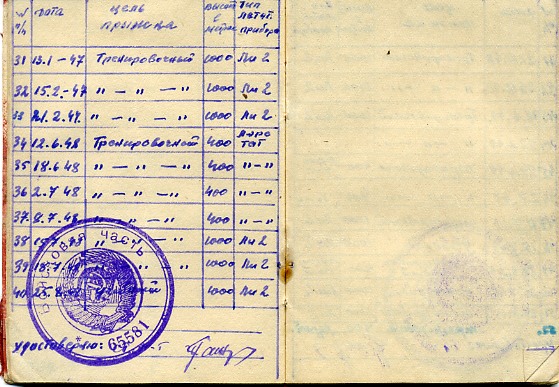 № п/п дата цель прыжка высот. в метрах тип летат. прибора
31 13.1-47 Тренировочный 1000 Ли 2
32 15.2-47 " — " — " 1000 Ли 2
33 21.2.47. " — " — " 1000 Ли 2
34 12.6.48 Тренировочный 400 Аэростат
35 18.6 48 " — " — " 400 "—"
36 2.7 48 " — " — " 400 "—"
37. 8.7.48 " — " — " 400 "—"
38 48 " — " 1000 Ли 2
39 18.7. " 1000 Ли 2
40 1000 Ли 2
Войсковая часть
65581
удостоверяю: